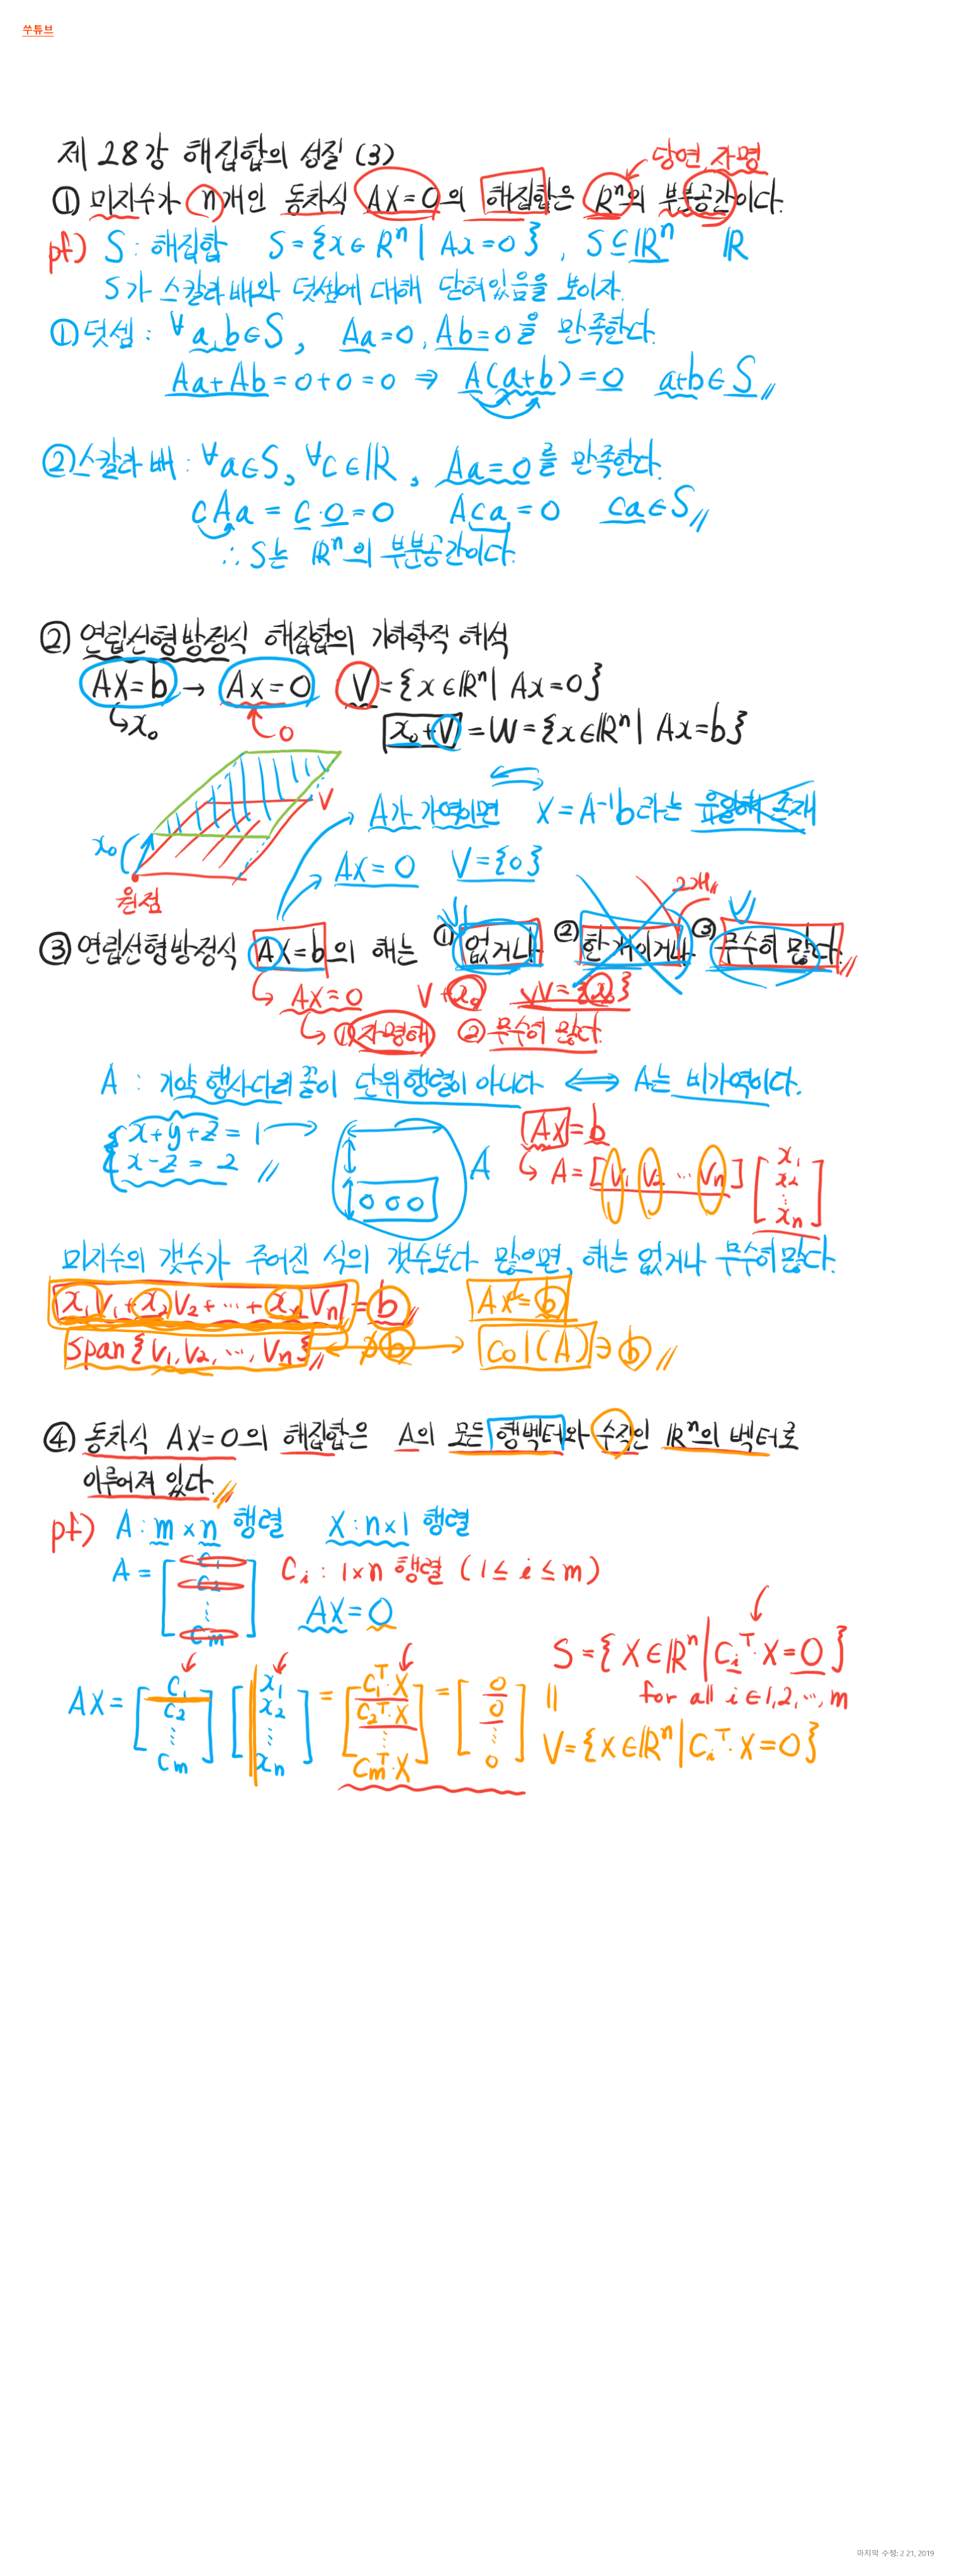 쑤튜브
제 28강 해집합의 성질 (3)
당연, 자명
① 미지수가 n개인 동차식 AX=0의 해집합은 Rⁿ의 부분공간이다.
pf) S : 해집합 S={x∈Rⁿ | Ax=0}, S⊆ℝⁿ ℝ
S가 스칼라 배와 덧셈에 대해 닫혀있음을 보이자.
① 덧셈 : ∀a,b∈S, Aa=0, Ab=0을 만족한다.
Aa+Ab=0+0=0 ⇒ A(a+b)=0 a+b∈S
② 스칼라 배 : ∀a∈S, ∀c∈ℝ, Aa=0를 만족한다.
cAa = c·0=0 Aca=0 ca∈S
∴ S는 ℝⁿ의 부분공간이다.
② 연립선형방정식 해집합의 기하학적 해석
AX=b → Ax=0 V={x∈ℝⁿ | Ax=0}
↳x₀ 0 x₀+V = W={x∈ℝⁿ | Ax=b}
V
x₀
원점
A가 가역이면 X=A⁻¹b라는 유일해 존재
AX=0 V={0}
2개
③ 연립선형방정식 AX=b의 해는 ① 없거나 ② 한 개이거나 ③ 무수히 많다.
↳ AX=0 V+x₀ W={x₀}
↳ ① 자명해 ② 무수히 많다.
A : 기약 행사다리꼴이 단위행렬이 아니다 ⟺ A는 비가역이다.
{x+y+z=1
x-z=2
0 0 0
A
AX=b
↳ A=[v₁ v₂ … vn] [x₁ x₂ ⋮ xn]
미지수의 갯수가 주어진 식의 갯수보다 많으면, 해는 없거나 무수히 많다.
x₁v₁+x₂v₂+…+xnvn = b AX=b
span{v₁,v₂,…,vn} ∌ b col(A)∋b
④ 동차식 AX=0의 해집합은 A의 모든 행벡터와 수직인 ℝⁿ의 벡터로
이루어져 있다.
pf) A : m×n 행렬 X : n×1 행렬
A = [c₁ c₂ ⋮ cm] Ci : 1×n 행렬 (1≤i≤m)
AX=0
S={X∈ℝⁿ | Ciᵀ·X=0}
for all i∈1,2,…,m
AX = [c₁ c₂ ⋮ cm] [x₁ x₂ ⋮ xn] = [C₁ᵀ·X C₂ᵀ·X ⋮ Cmᵀ·X] = [0 0 ⋮ 0] ||
V={x∈ℝⁿ | Ciᵀ·X=0}
마지막 수정: 2 21, 2019